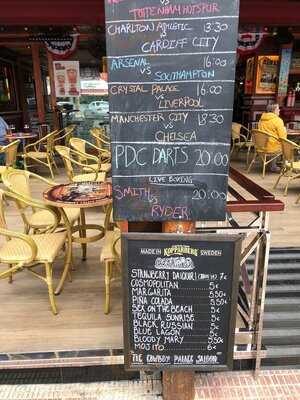 TOTTENHAM HOTSPUR
CHARLTON ATHLETIC 13:30
VS
CARDIFF CITY
ARSENAL 16:00
VS SOUTHAMPTON
CRYSTAL PALACE 16:00
VS LIVERPOOL
MANCHESTER CITY 18:30
VS CHELSEA
PDC DARTS 20:00
LIVE BOXING
SMITH VS 20:00
RYDER
MADE IN KOPPARBERG SWEDEN
COCKTAILS
STRAWBERRY DAIQUIRI 7€
COSMOPOLITAN 5€
MARGARITA 5.50€
PIÑA COLADA 5.50€
SEX ON THE BEACH 5€
TEQUILA SUNRISE 5€
BLACK RUSSIAN 5€
BLUE LAGOON 5€
BLOODY MARY 5.50€
MOJITO 6€
THE COWBOY PALACE SALOON